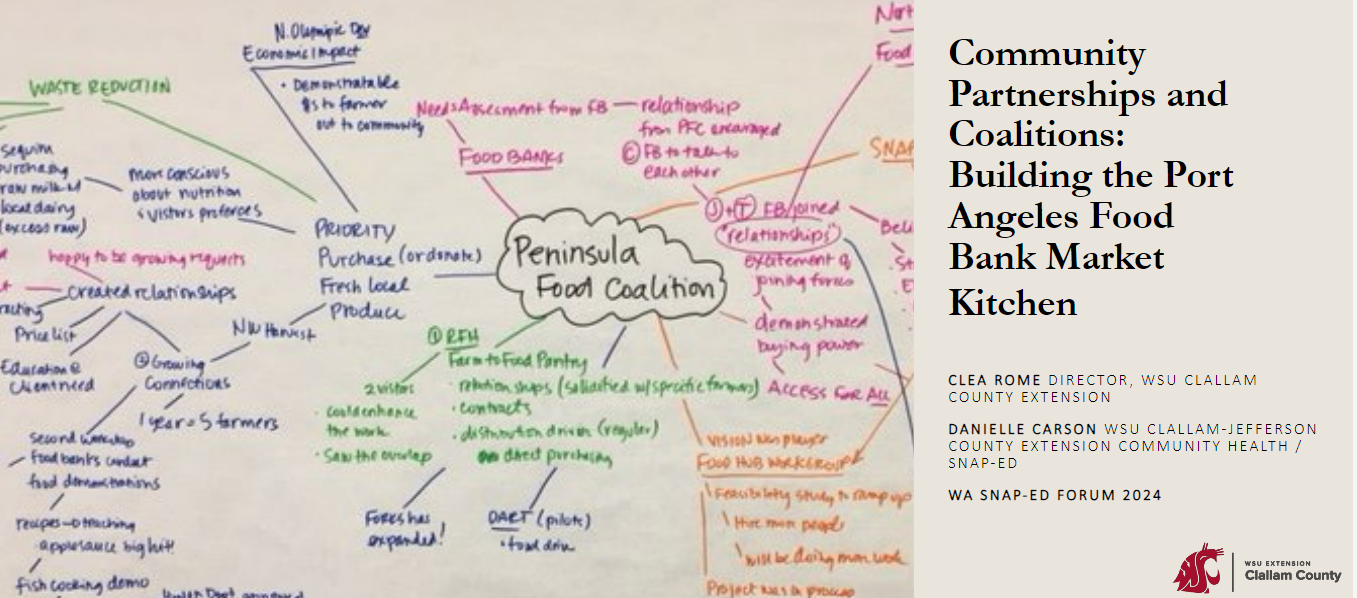 N. Olympic Dev
Economic Impact
• Demonstratable
$s to farmer
out to community
WASTE REDUCTION
Sequim
purchasing
raw milk
local dairy
(excess raw)
more conscious
about nutrition
& vistors prefences
Needs Assesment from FB — relationship
from PFC encouraged
© FB to talk to
each other
FOOD BANKS
Food
SNAP
J + T FB joined
"relationships"
excitement of
joining forces
demonstrated
buying power
ACCESS FOR ALL
PRIORITY
Purchase (or donate)
Fresh local
Produce
Peninsula
Food Coalition
happy to be growing requests
created relationships
Price list
Education @
Client need
NW Harvest
Growing
Connections
1 year = 5 farmers
Second workshop
food banks conduct
food demonstrations
recipes → teaching
applesauce big hit!
fish cooking demo
① RFH
Farm to Food Pantry
2 visitors
• could enhance
the work
• Saw the overlap
• relationships (solidified w/ specific farmers)
• contracts
• distribution driven (regular)
direct purchasing
Forks has
expanded!
DART (pilote)
• food driv
VISION
player
FOOD HUB WORKGROUP
Feasibility study to ramp up
Hire more people
will be doing more work
Project was in process
Community
Partnerships and
Coalitions:
Building the Port
Angeles Food
Bank Market
Kitchen
CLEA ROME DIRECTOR, WSU CLALLAM
COUNTY EXTENSION
DANIELLE CARSON WSU CLALLAM-JEFFERSON
COUNTY EXTENSION COMMUNITY HEALTH /
SNAP-ED
WA SNAP-ED FORUM 2024
WSU EXTENSION
Clallam County